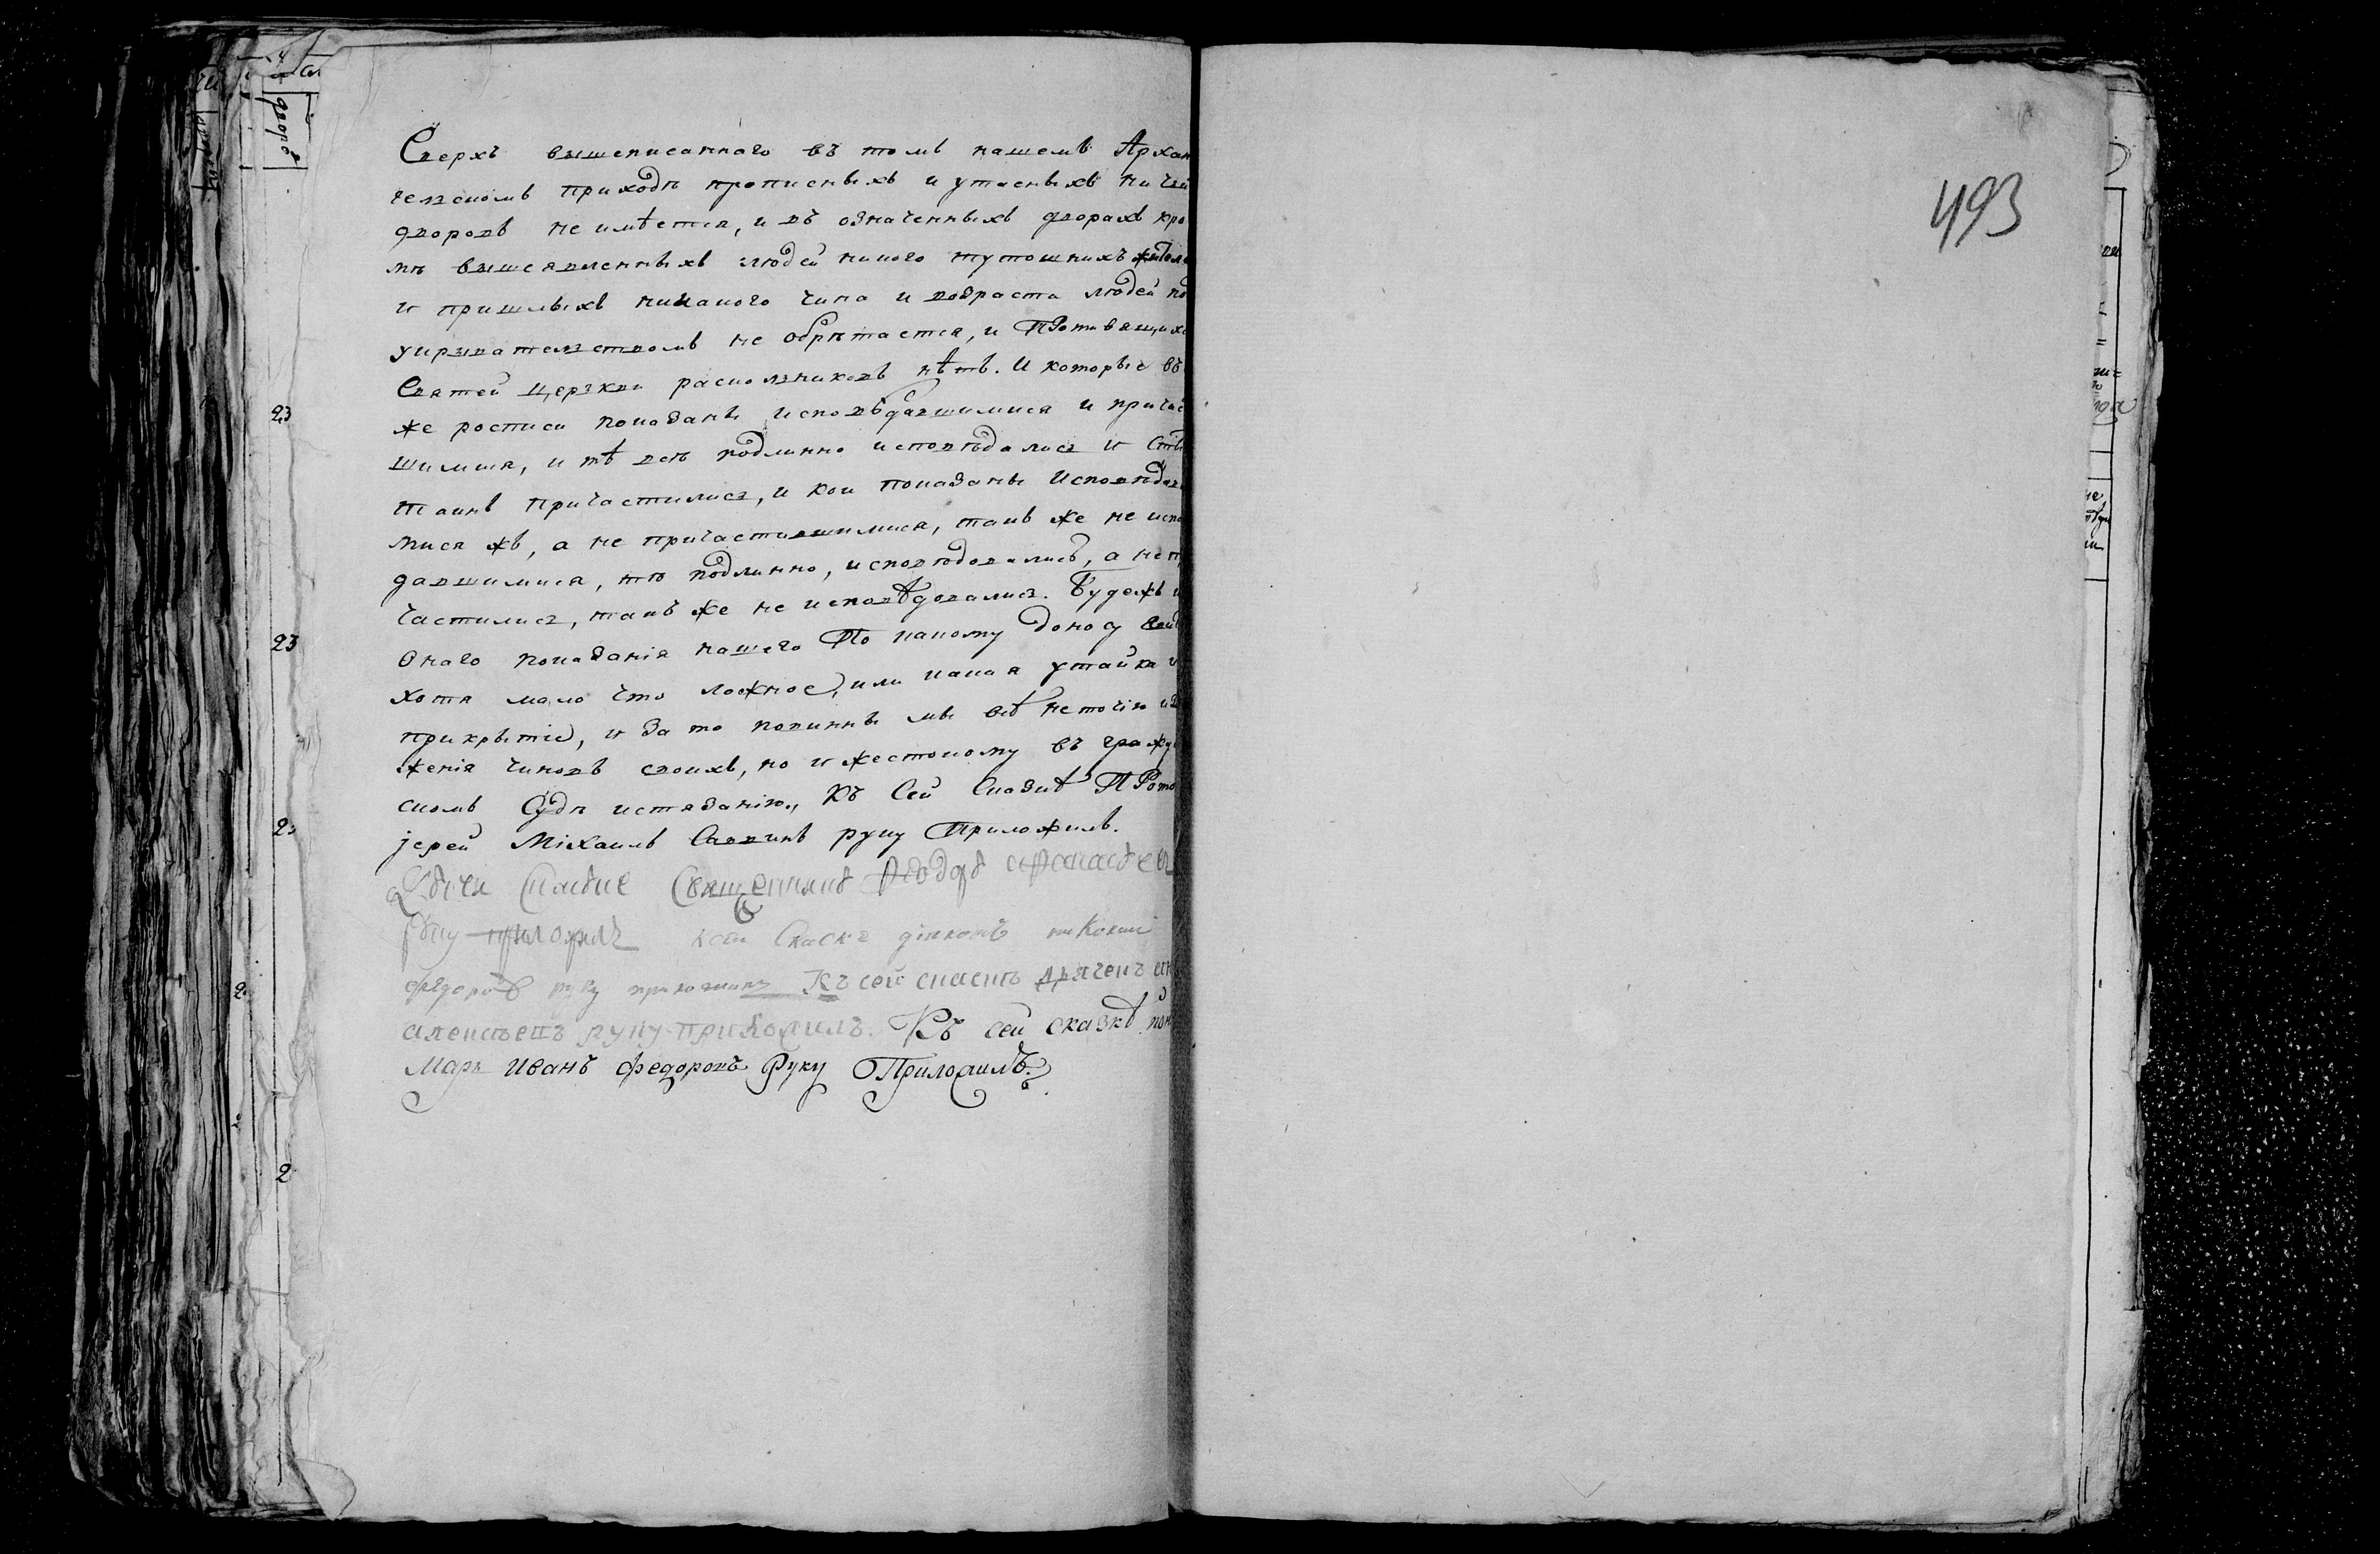 Сверхъ вышеписаннаго въ томъ нашемъ Архан
гелскомъ приходѣ прописныхъ и утаеныхъ ничьи
дворовъ не имѣется, и въ означенныхъ дворахъ кро
мѣ вышеявленныхъ людей никого тутошнихъ жител
и пришлыхъ никакого чина и возраста людей по
укрывателством не обрѣтается, и Противящихс
Святей церкви расколниковъ нѣтъ. И которые въ
же росписи показаны исповѣдавшимися и причас
шимися, и тѣ всѣ подлинно исповѣдались и Стых
таинъ причастились, и кои показаны Исповѣдав
мися жъ, а не причастившимися, такъ же не испо
давшимися, тѣ подлинно, исповѣдовались, а не п
частились, такъ же не исповѣдовались. Будежъ и
Онаго показанія нашего По какому доносу
хотя мало что ложное, или какая утайка и
прикрытіе, и За то повинны мы не точію из
женія чиновъ своихъ, но и жестокому въ граж
скомъ Судѣ истязанію, Къ Сей Сказкѣ Прото
іерей Міхаилъ Саввинъ руку Приложилъ.
Священникъ Ѳеодоръ
руку приложилъ Сказкѣ
федоровъ руку приложилъ Къ сей скаскѣ дьячекъ
алексѣевъ руку приложилъ. Къ сей сказкѣ пон
Марь Иванъ Федоровъ Руку Приложилъ.
493